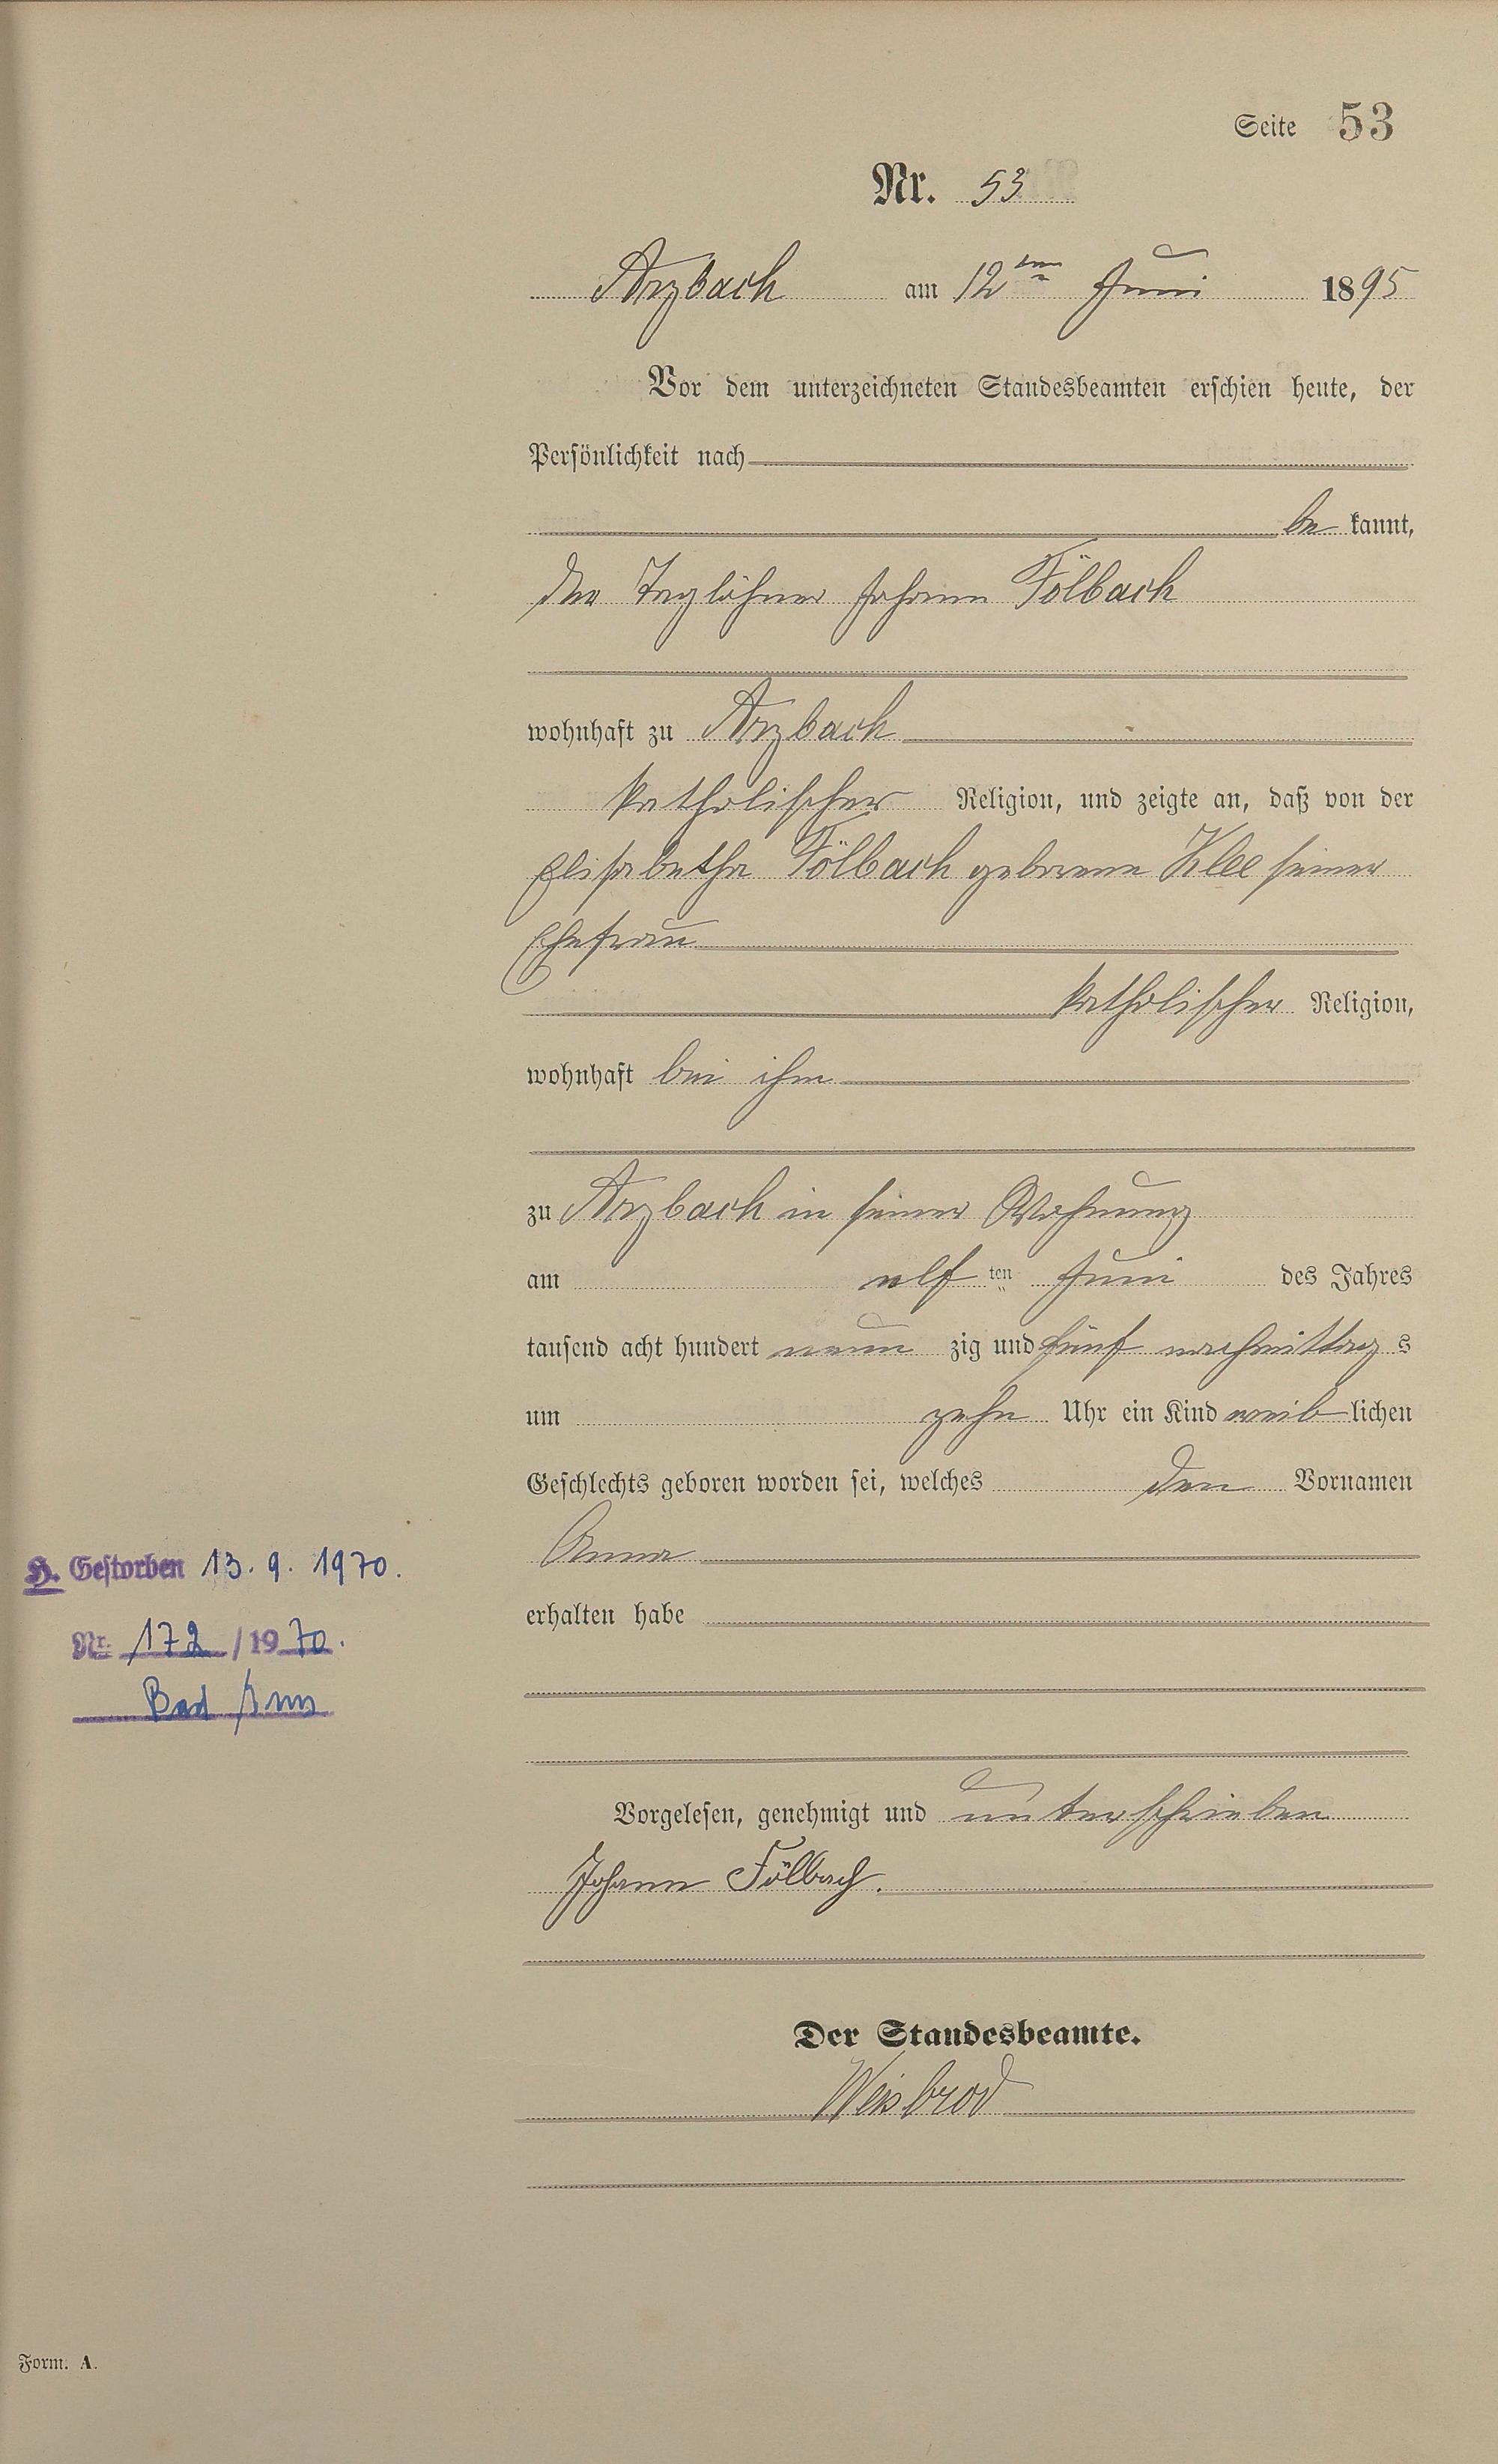 Seite 53
Nr. 53
Arzbach am 12ten Juni 1895
Vor dem unterzeichneten Standesbeamten erschien heute, der
Persönlichkeit nach
be kannt,
der Taglöhner Johann Fölbach
wohnhaft zu Arzbach
katholischer Religion, und zeigte an, daß von der
Elisabetha Fölbach geborene Klee seiner
Ehefrau
katholischer Religion,
wohnhaft bei ihm
zu Arzbach in seiner Wohnung
am elf ten Juni des Jahres
tausend acht hundert neun zig und fünf nachmittag s
um zehn Uhr ein Kind weib lichen
Geschlechts geboren worden sei, welches den Vornamen
Anna
H. Gestorben 13. 9. 1970.
erhalten habe
Nr. 172 / 1970.
Bad Ems
Vorgelesen, genehmigt und unterschrieben
Johann Fölbach.
Der Standesbeamte.
Weisbrod
Form. A.